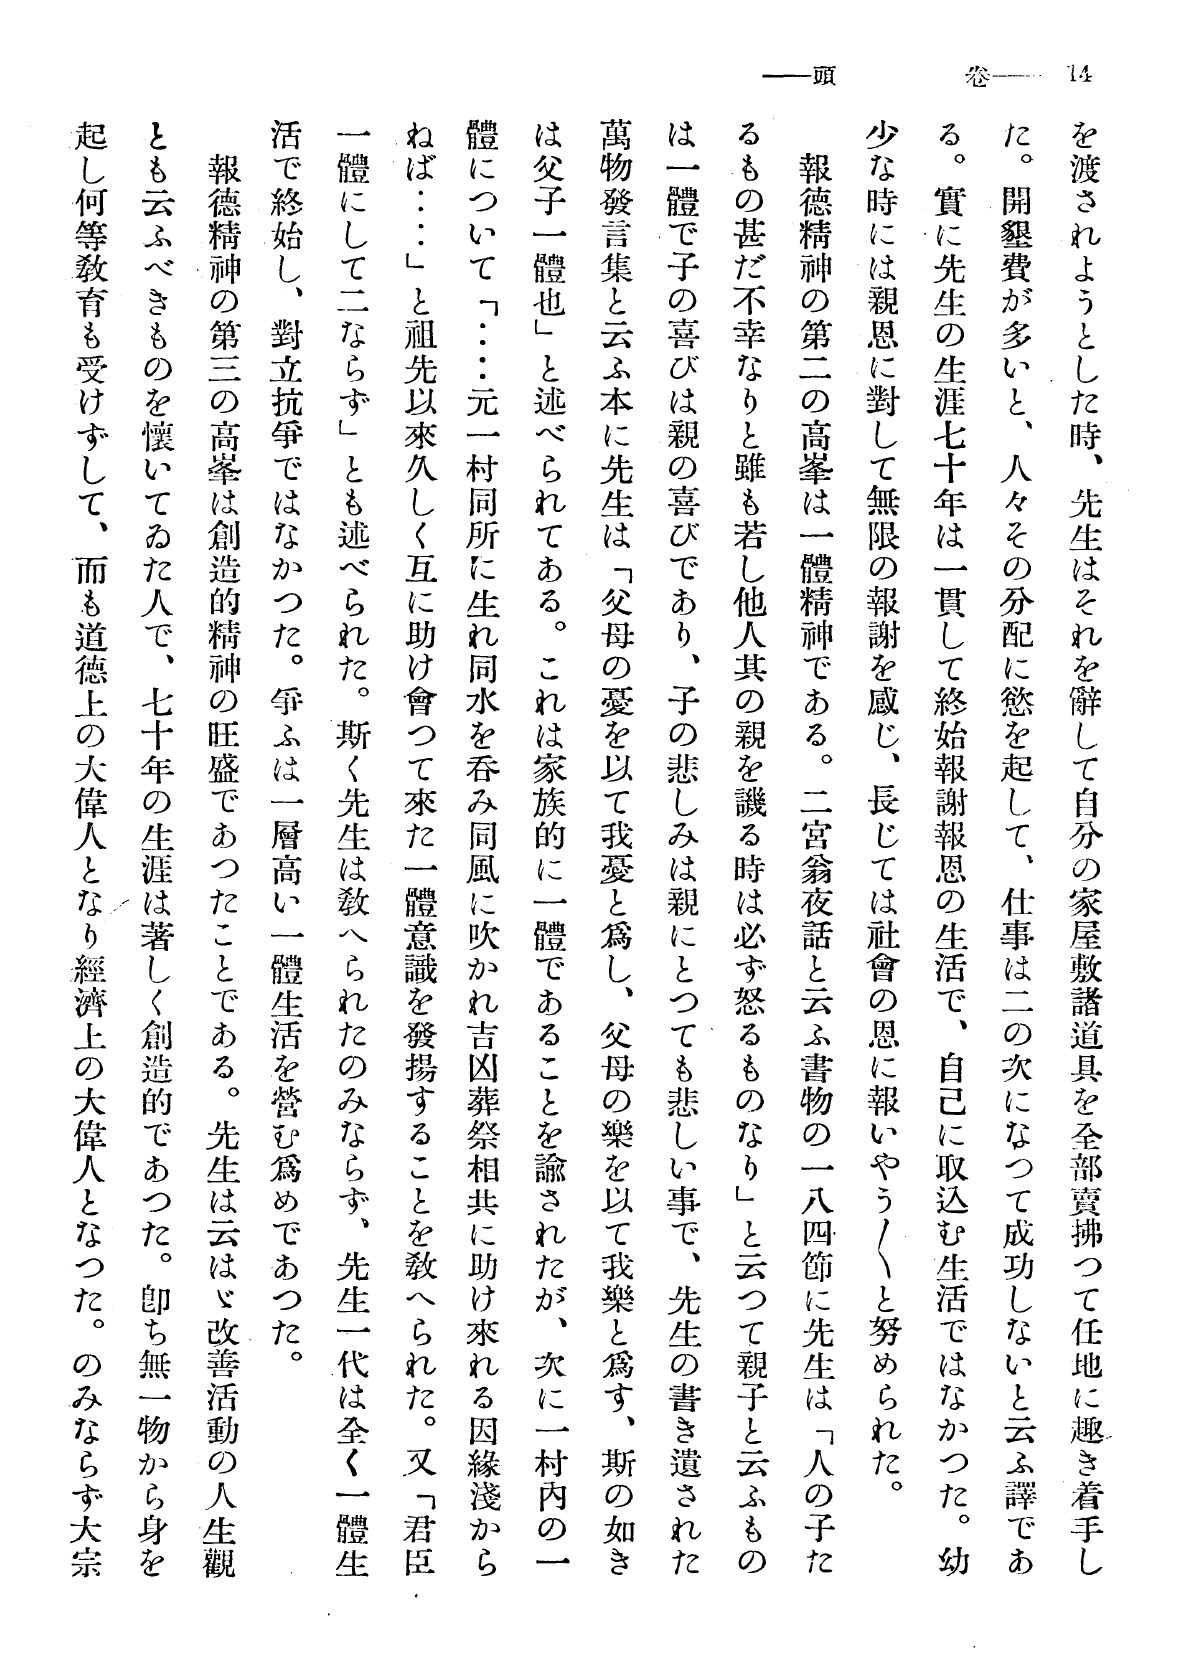 14 ——卷 頭——
を渡されようとした時、先生はそれを辭して自分の家屋敷諸道具を全部賣拂つて任地に趣き着手し
た。開墾費が多いと、人々その分配に慾を起して、仕事は二の次になつて成功しないと云ふ譯であ
る。實に先生の生涯七十年は一貫して終始報謝報恩の生活で、自己に取込む生活ではなかつた。幼
少な時には親恩に對して無限の報謝を感じ、長じては社會の恩に報いやう〱と努められた。
報德精神の第二の高峯は一體精神である。二宮翁夜話と云ふ書物の一八四節に先生は「人の子た
るもの甚だ不幸なりと雖も若し他人其の親を譏る時は必ず怒るものなり」と云つて親子と云ふもの
は一體で子の喜びは親の喜びであり、子の悲しみは親にとつても悲しい事で、先生の書き遺された
萬物發言集と云ふ本に先生は「父母の憂を以て我憂と爲し、父母の樂を以て我樂と爲す、斯の如き
は父子一體也」と述べられてある。これは家族的に一體であることを諭されたが、次に一村内の一
體について「‥‥元一村同所に生れ同水を呑み同風に吹かれ吉凶葬祭相共に助け來れる因緣淺から
ねば‥‥」と祖先以來久しく互に助け會つて來た一體意識を發揚することを敎へられた。又「君臣
一體にして二ならず」とも述べられた。斯く先生は敎へられたのみならず、先生一代は全く一體生
活で終始し、對立抗爭ではなかつた。爭ふは一層高い一體生活を營む爲めであつた。
報德精神の第三の高峯は創造的精神の旺盛であつたことである。先生は云はゞ改善活動の人生觀
とも云ふべきものを懷いてゐた人で、七十年の生涯は著しく創造的であつた。卽ち無一物から身を
起し何等敎育も受けずして、而も道德上の大偉人となり經濟上の大偉人となつた。のみならず大宗